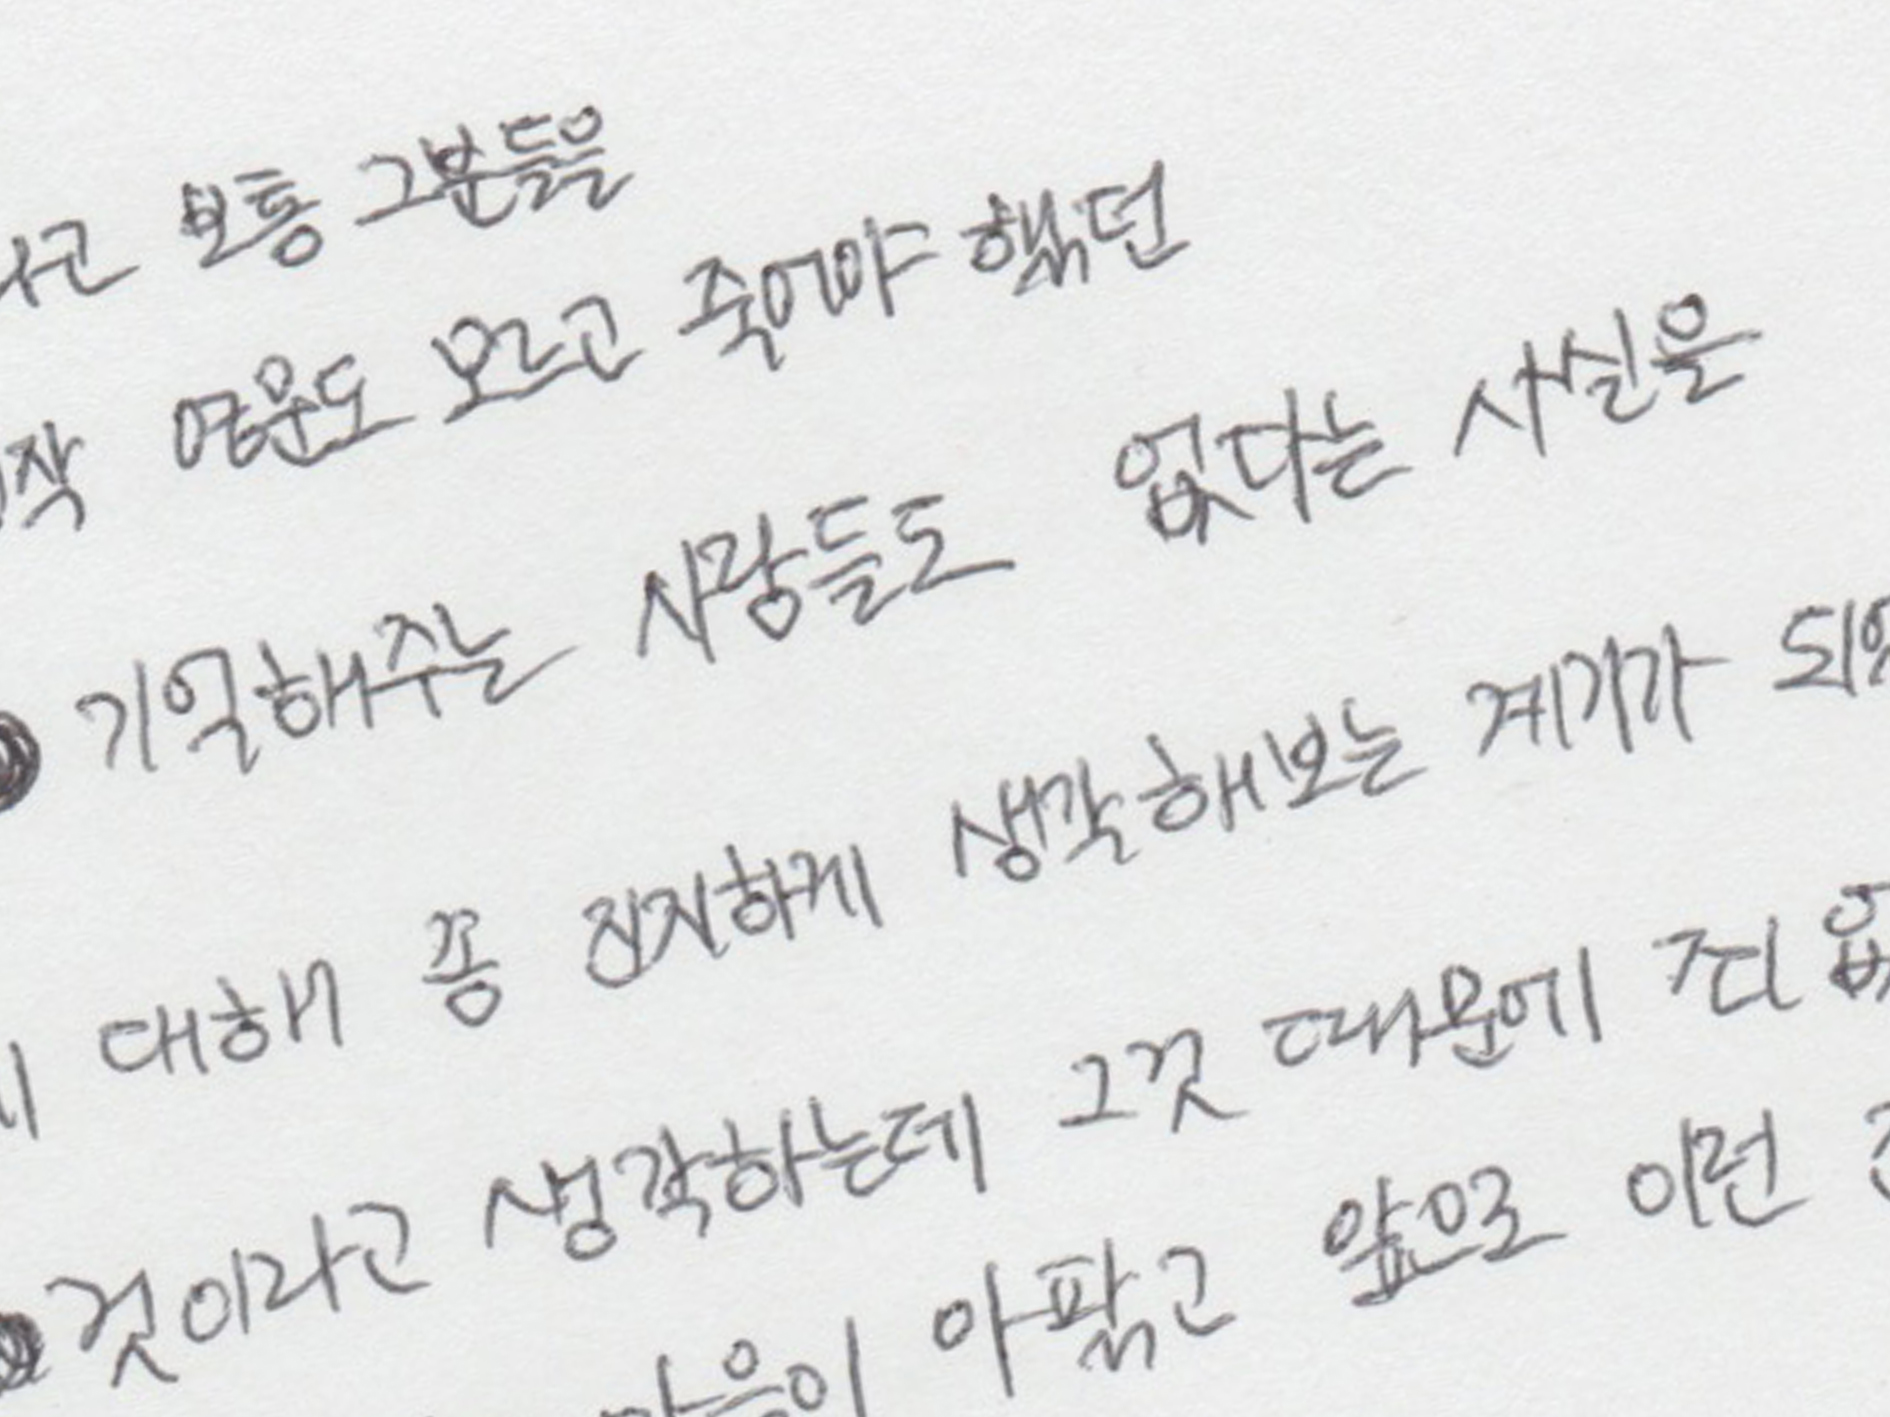 고 보통 그분들을
작 영운도 모르고 죽어야 했던
기억해주는 사람들도 없다는 사실을
대해 쫌 진지하게 생각해보는 계기가 되었
것이라고 생각하는데 그것 때문에 죄 없
마음이 아팠고 앞으로 이런